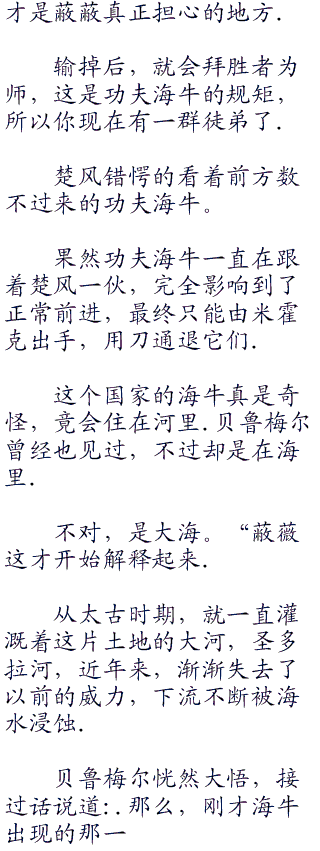 才是蔽蔽真正担心的地方.
输掉后，就会拜胜者为
师，这是功夫海牛的规矩，
所以你现在有一群徒弟了.
楚风错愕的看着前方数
不过来的功夫海牛。
果然功夫海牛一直在跟
着楚风一伙，完全影响到了
正常前进，最终只能由米霍
克出手，用刀通退它们.
这个国家的海牛真是奇
怪，竟会住在河里.贝鲁梅尔
曾经也见过，不过却是在海
里.
不对，是大海。“蔽薇
这才开始解释起来.
从太古时期，就一直灌
溉着这片土地的大河，圣多
拉河，近年来，渐渐失去了
以前的威力，下流不断被海
水浸蚀.
贝鲁梅尔恍然大悟，接
过话说道:.那么，刚才海牛
出现的那一